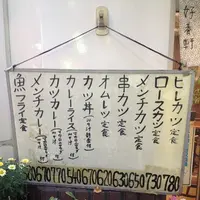 好養軒
ヒレカツ定食
ロースカツ定食
メンチカツ定食
串カツ定食
オムレツ定食
カツ丼
カレーライス
カツカレー
メンチカレー
魚フライ定食
620 670 770 540 670 620 630 650 730 780